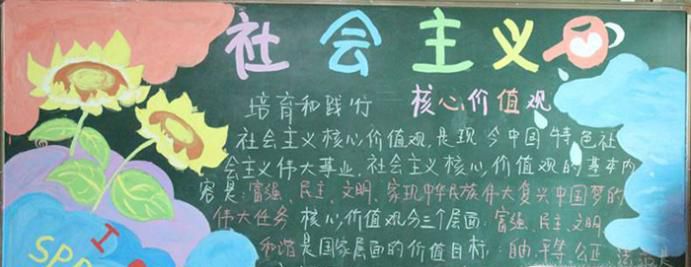 社会主义
培育和践行 核心价值观
社会主义核心价值观,是现今中国特色社
会主义伟大事业.社会主义核心价值观的基本内
容是:富强、民主、文明、家现中华民族伟大复兴中国梦的
伟大任务 核心价值观分三个层面:富强、民主、文明
和谐是国家层面的价值目标: 由、平等、公正
I
SPR